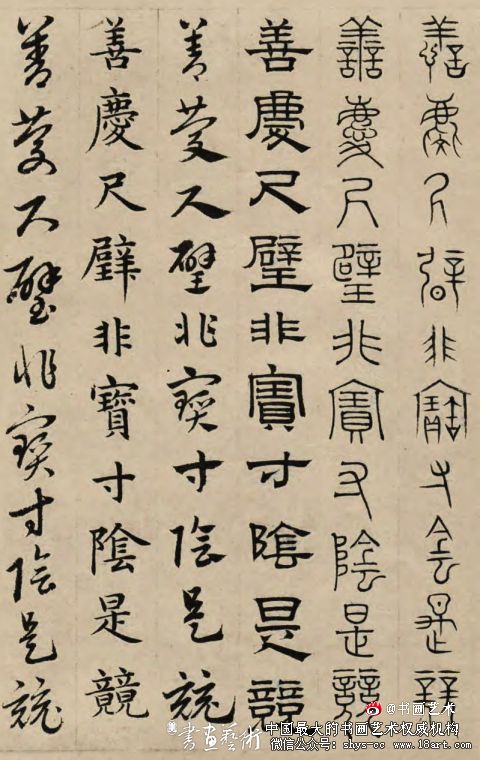 善慶尺璧非寶寸陰是競
善慶尺璧非寶寸陰是競
善慶尺璧非寶寸陰是競
善慶尺璧非寶寸陰是競
善慶尺璧非寶寸陰是競
善慶尺璧非寶寸陰是競
@书画艺术
書畫藝術
中国最大的书画艺术权威机构
微信公众号：shys-cc www.18art.com